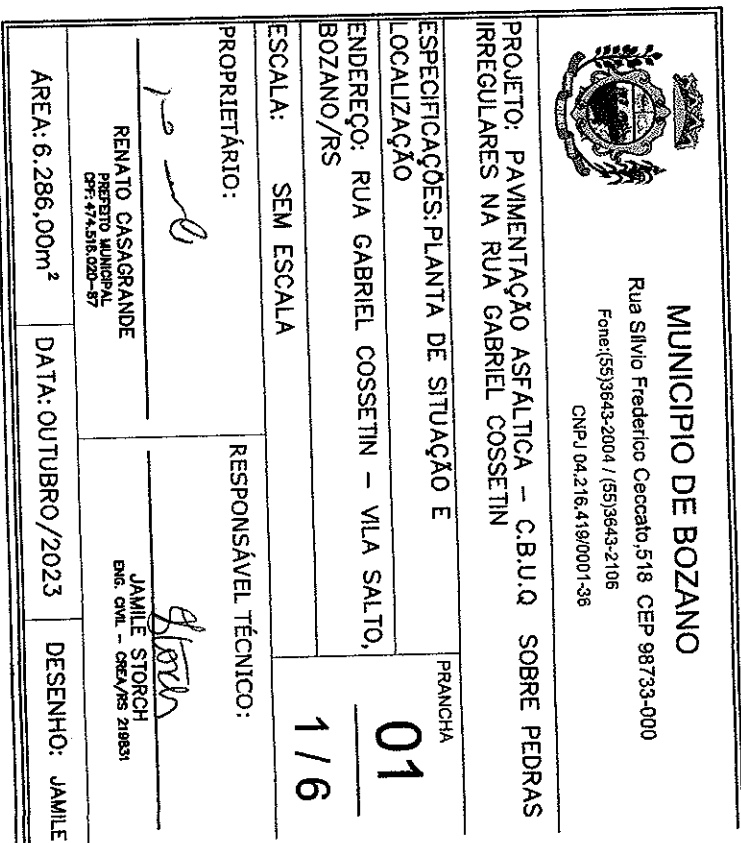 MUNICIPIO DE BOZANO
Rua Sílvio Frederico Ceccato,518 CEP 98733-000
Fone:(55)3643-2004 / (55)3643-2106
CNPJ 04.216.419/0001-36
PROJETO: PAVIMENTAÇÃO ASFÁLTICA – C.B.U.Q SOBRE PEDRAS
IRREGULARES NA RUA GABRIEL COSSETIN
ESPECIFICAÇÕES: PLANTA DE SITUAÇÃO E
LOCALIZAÇÃO
ENDEREÇO: RUA GABRIEL COSSETIN – VILA SALTO,
BOZANO/RS
ESCALA: SEM ESCALA
PRANCHA
01
1/6
PROPRIETÁRIO:
RENATO CASAGRANDE
PREFEITO MUNICIPAL
CPF: 474.518.020-87
RESPONSÁVEL TÉCNICO:
Storch
JAMILE STORCH
ENG. CIVIL – CREA/RS 219831
ÁREA: 6.286,00m²
DATA: OUTUBRO/2023
DESENHO: JAMILE